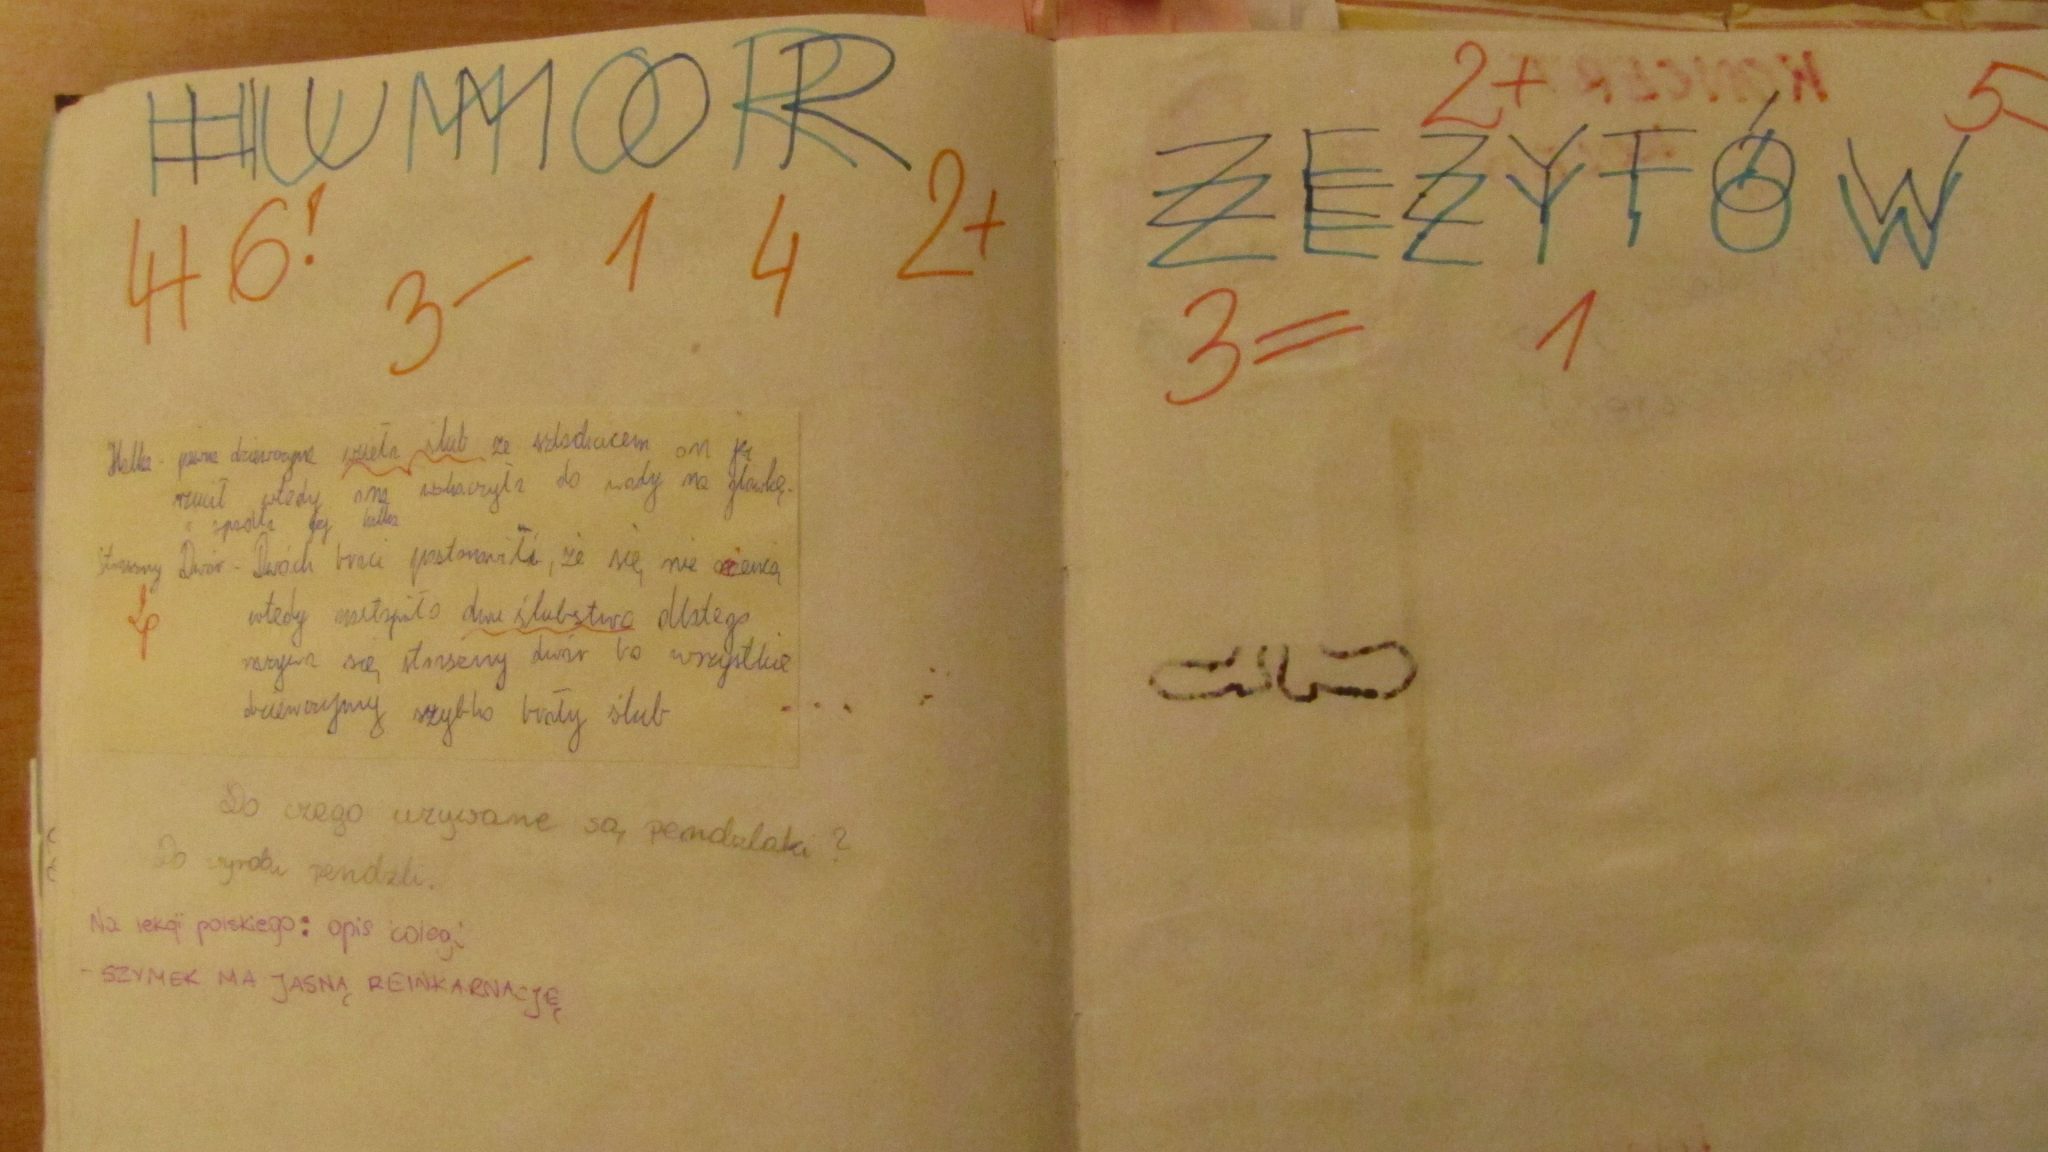 HUMOR
4+ 6! 3- 1 4 2+
Halka - pewna dziewczyna wzieła ślub ze szlachcicem on ją
rzucił wtedy ona wskoczyła do wody na główkę.
i spadła jej halka
Straszny Dwór - Dwóch braci postanowiło, że się nie ożenią
wtedy nastąpiło dwu ślubstwo dlatego
nazywa się straszny dwór bo wszystkie
dziewczyny szybko brały ślub
Do czego uzywane są pendzlaki?
Do wyrobu pendzli.
Na lekcji polskiego: opis kolegi
- SZYMEK MA JASNĄ REINKARNACJĘ
2+ 5-
ZEZYTÓW
3= 1